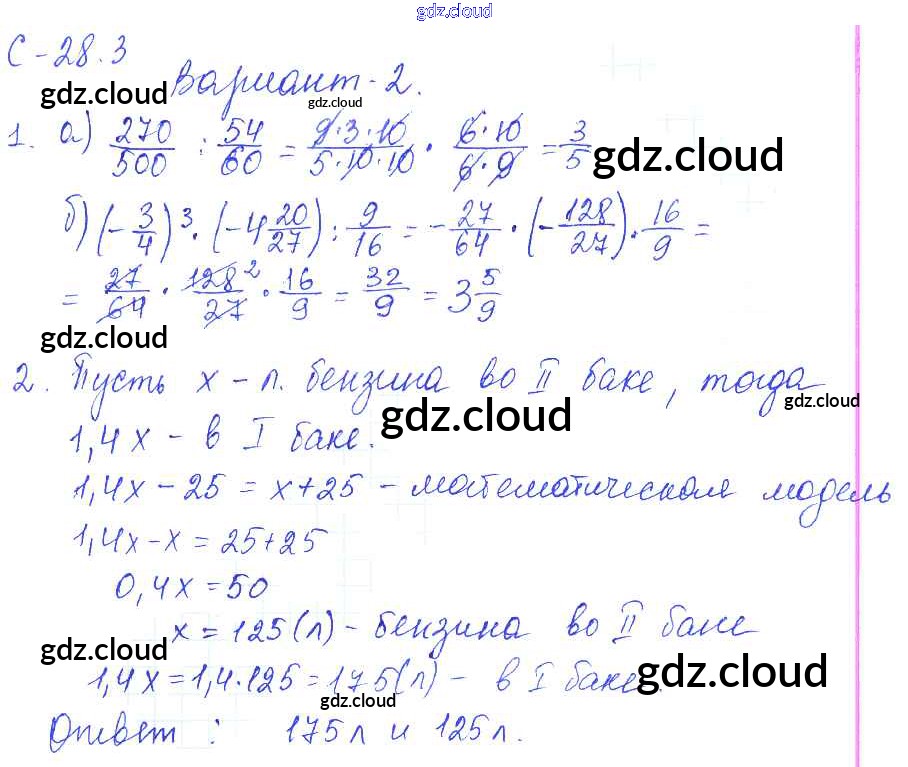 gdz.cloud
С-28.3
Вариант-2.
gdz.cloud
gdz.cloud
1. а) 270/500 : 54/60 = 9·3·10/5·10·10 · 6·10/6·9 = 3/5
gdz.cloud
б) (-3/4)³ · (-4 20/27) : 9/16 = -27/64 · (-128/27) · 16/9 =
= 27/64 · 128²/27 · 16/9 = 32/9 = 3 5/9
gdz.cloud
2. Пусть х - л. бензина во II баке, тогда
gdz.cloud
gdz.cloud
1,4х - в I баке.
1,4х - 25 = х+25 - математическая модель
1,4х-х = 25+25
0,4х = 50
х = 125(л) - бензина во II баке
gdz.cloud
gdz.cloud
1,4х = 1,4·125 = 175(л) - в I баке.
gdz.cloud
Ответ: 175л и 125л.